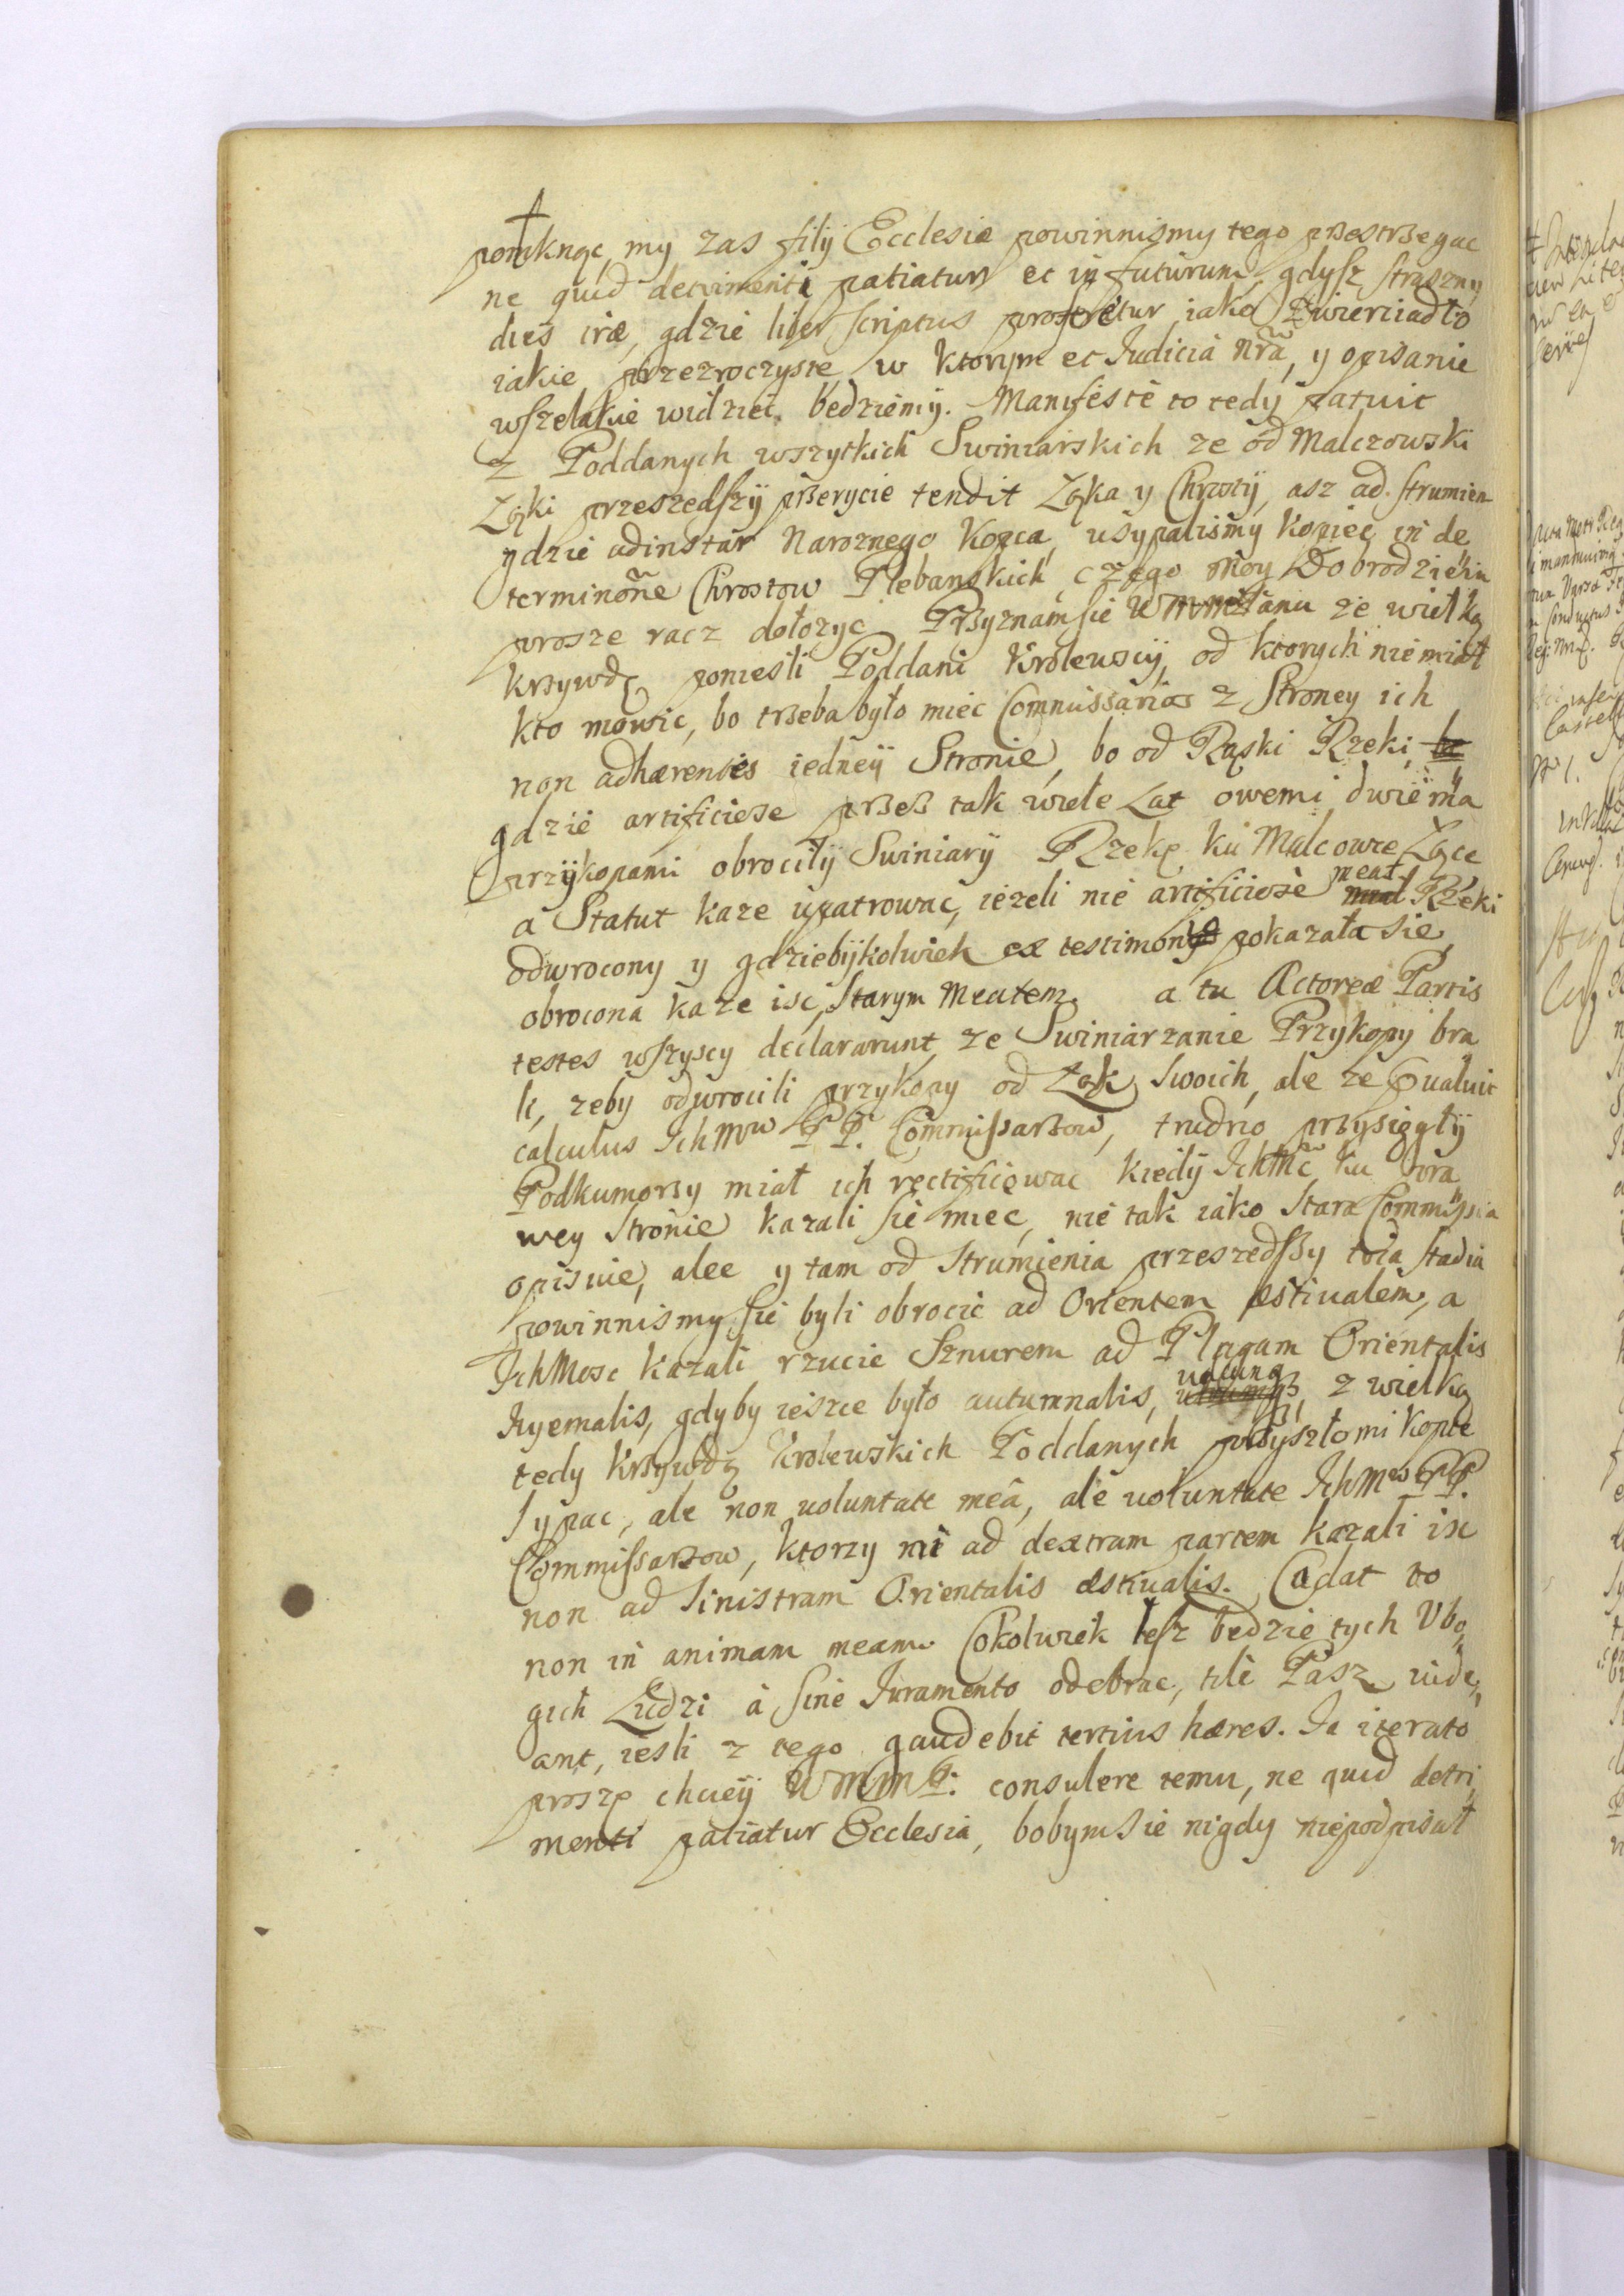 pomknąc, my zas filij Ecclesiæ powinnismy tego przestrzegac
ne quid detrimenti patiatur et in futurum, gdysz straszny
dies iræ, gdzie liber scriptus proferetur iako Zwierciadło
iakie przezroczyste, w ktorym et Judicia nrã, y opisanie
wszelakie widziec będziemy. Manifeste to tedy patuit
z Poddanych wszytkich Swiniarskich ze od Malczowski
Ząki przeszedszy przerycie tendit Ząka y Chrosty, asz ad strumien
gdzie ad instar Naroznego Kopca, usypalismy kopiec in de
terminoñe Chrostow Plebanskich, czego moy Dobrodzieiu
prosze racz dołozyc. Przyznam sie WMMPanu ze wielką
krzywdę poniesli Poddani Krolewscy, od ktorych nie miał
kto mowic, bo trzeba było miec Commissarios z Stroney ich
non adhærentes iedney Stronie, bo od Rąski Rzeki,
gdzie artificiose przez tak wiele Lat owemi dwiema
przykopami obrocily Swiniary Rzekę ku Malcowce Zące
a Statut kaze upatrowac, iezeli nie artificiose meat Rzeki
odwrocony y gdziebykolwiek ex testimonijs pokazała sie
obrocona kaze isc, starym Meatem. a tu Actoreæ Partis
testes wszyscy declararunt, ze Swiniarzanie Przykopy bra
li, zeby odwrocili przykopy od Ząk swoich, ale ze prævaluit
calculus IchMw PP. Commissarzow, trudno przysięgły
Podkumorzy miał ich rectificowac kiedy IchMc ku pra
wey stronie kazali sie miec, nie tak iako stara Commissia
opisuie, alee y tam od strumienia przeszedszy tria stadia
powinnismy sie byli obrocic ad Orientem æstivalem, a
IchMosc kazali rzucic Sznurem ad Plagam Orientalis
hyemalis, gdyby ieszce było autumnalis, z wielką
tedy krzywdą Krolewskich Poddanych przyszło mi kopce
sypac, ale non voluntate meâ, ale voluntate IchMos PP.
Commissarzow, ktorzy mi ad dextram partem kazali isc
non ad sinistram Orientalis æstivalis. Cadat to
non in animam meam. Cokolwiek tesz będzie tych Vbo
gich Ludzi a sine Juramento odebrac, tile Pasz vide
ant, iesli z tego gaudebit tertius hæres. Ja iterato
proszę chciey WMMP: consulere temu, ne quid detri
menti patiatur Ecclesia, bobym sie nigdy niepodpisał